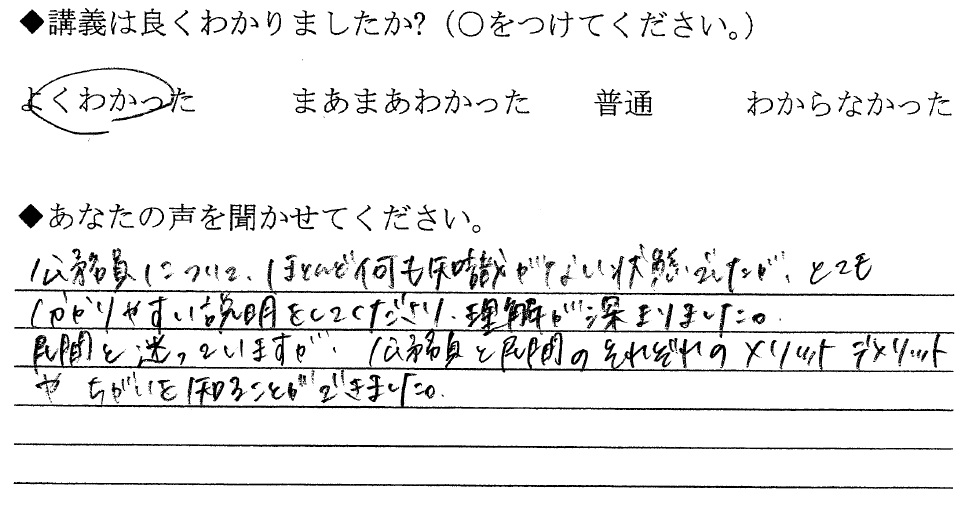 ◆講義は良くわかりましたか?（○をつけてください。）
よくわかった　まあまあわかった　普通　わからなかった
◆あなたの声を聞かせてください。
公務員について、ほとんど何も知識がない状態でしたが、とても
分かりやすい説明をしてくださり、理解が深まりました。
民間と迷っていますが、公務員と民間のそれぞれのメリットデメリット
やちがいを知ることができました。